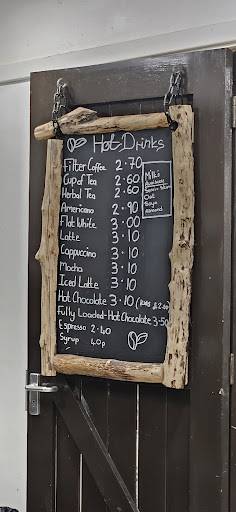 Hot Drinks
Filter Coffee 2.70
Cup of Tea 2.60
Herbal Tea 2.60
Americano 2.90
Flat White 3.00
Latte 3.10
Cappuccino 3.10
Mocha 3.10
Iced Latte 3.10
Hot Chocolate 3.10
Fully Loaded-Hot Chocolate 3.50
Espresso 2.40
Syrup 40p
Milk's
Oat
Soya
Almond